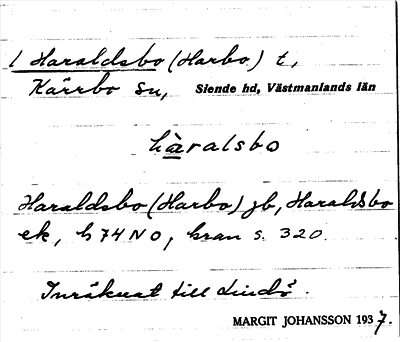 1 Haraldsbo (Harbo) t,
Kärrbo sn, Siende hd, Västmanlands län
hàralsbo
Haraldsbo (Harbo) jb, Haraldsbo
ek, h 74 NO, kran s. 320.
Inräknat till Lindö.
MARGIT JOHANSSON 1937.